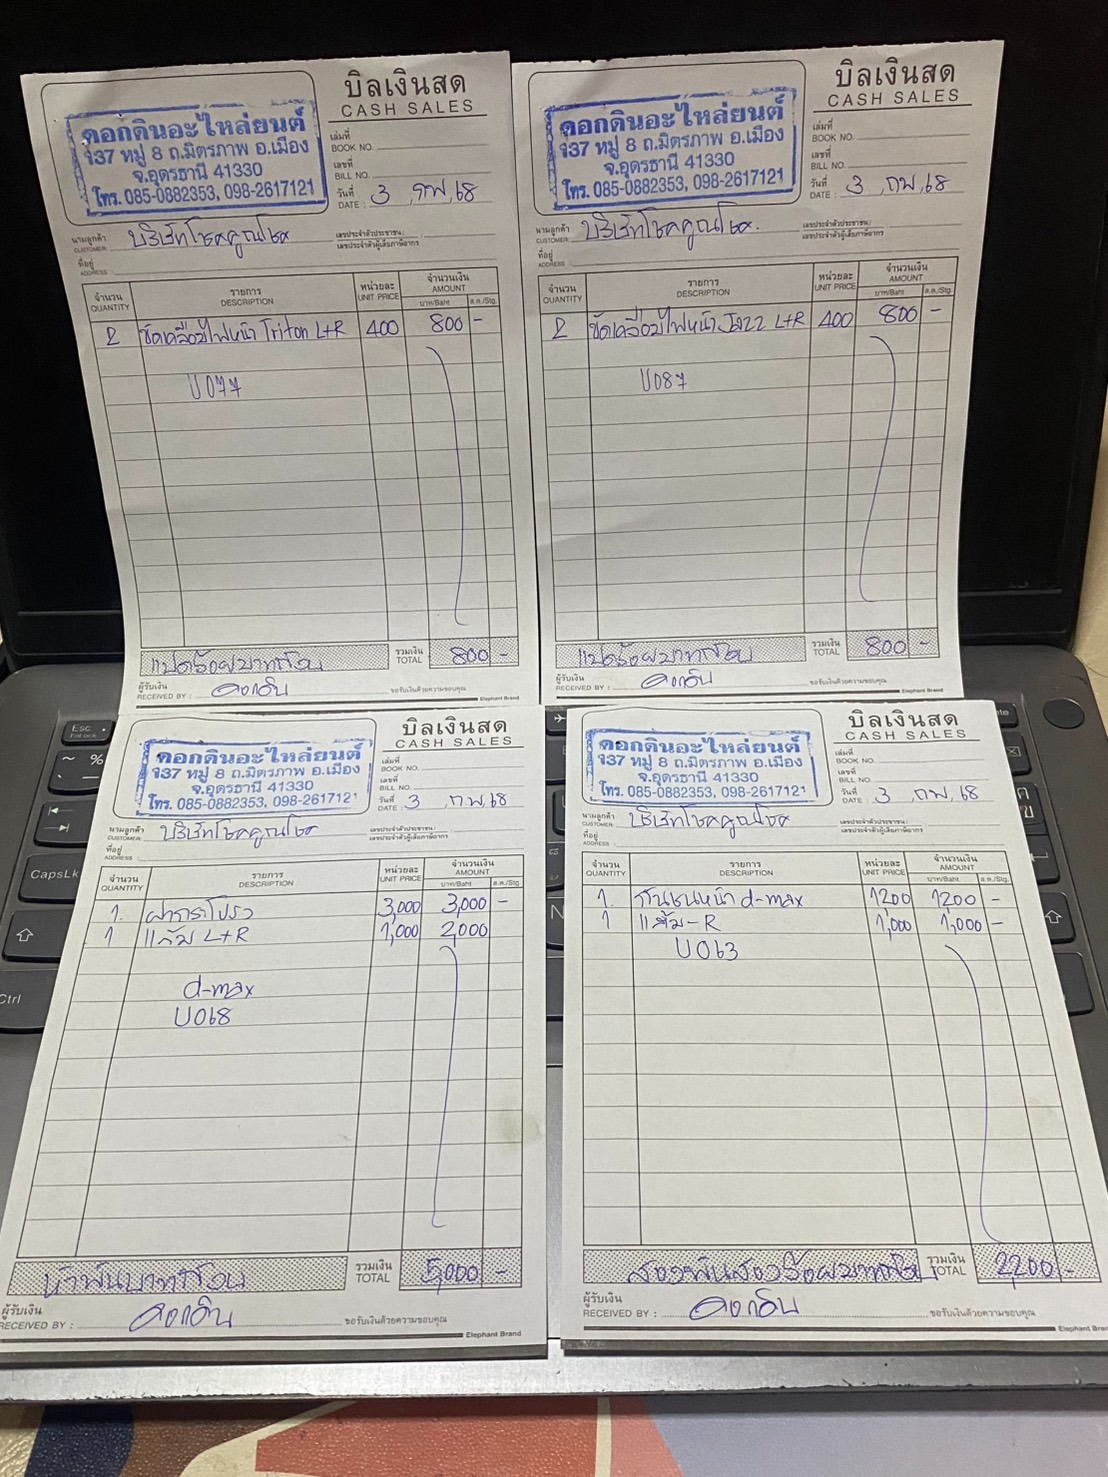 บิลเงินสด
CASH SALES
ดอกดินอะไหล่ยนต์
137 หมู่ 8 ถ.มิตรภาพ อ.เมือง
จ.อุดรธานี 41330
โทร. 085-0882353, 098-2617121
เล่มที่
BOOK NO.
เลขที่
BILL NO.
วันที่ 3 ,กพ,68
DATE :
นามลูกค้า บริษัทโชคคูณโชค
CUSTOMER
เลขประจำตัวประชาชน/
เลขประจำตัวผู้เสียภาษีอากร
ที่อยู่
ADDRESS
จำนวน รายการ หน่วยละ จำนวนเงิน
QUANTITY DESCRIPTION UNIT PRICE AMOUNT
บาท/Baht ส.ต./Stg.
2 ขัดเคลือบไฟหน้า Triton L+R 400 800 -
U077
แปดร้อยบาทถ้วน รวมเงิน TOTAL 800 -
ผู้รับเงิน
RECEIVED BY : ดอกดิน ขอรับเงินด้วยความขอบคุณ
Elephant Brand
บิลเงินสด
CASH SALES
ดอกดินอะไหล่ยนต์
137 หมู่ 8 ถ.มิตรภาพ อ.เมือง
จ.อุดรธานี 41330
โทร. 085-0882353, 098-2617121
เล่มที่
BOOK NO.
เลขที่
BILL NO.
วันที่ 3 ,กพ,68
DATE :
นามลูกค้า บริษัทโชคคูณโชค.
CUSTOMER
เลขประจำตัวประชาชน/
เลขประจำตัวผู้เสียภาษีอากร
ที่อยู่
ADDRESS
จำนวน รายการ หน่วยละ จำนวนเงิน
QUANTITY DESCRIPTION UNIT PRICE AMOUNT
บาท/Baht ส.ต./Stg.
2 ขัดเคลือบไฟหน้า Jazz L+R 400 800 -
U087
แปดร้อยบาทถ้วน รวมเงิน TOTAL 800 -
ผู้รับเงิน
RECEIVED BY : ดอกดิน ขอรับเงินด้วยความขอบคุณ
Elephant Brand
บิลเงินสด
CASH SALES
ดอกดินอะไหล่ยนต์
137 หมู่ 8 ถ.มิตรภาพ อ.เมือง
จ.อุดรธานี 41330
โทร. 085-0882353, 098-2617121
เล่มที่
BOOK NO.
เลขที่
BILL NO.
วันที่ 3 ,กพ,68
DATE :
นามลูกค้า บริษัทโชคคูณโชค
CUSTOMER
เลขประจำตัวประชาชน/
เลขประจำตัวผู้เสียภาษีอากร
ที่อยู่
ADDRESS
จำนวน รายการ หน่วยละ จำนวนเงิน
QUANTITY DESCRIPTION UNIT PRICE AMOUNT
บาท/Baht ส.ต./Stg.
1. ฝากระโปรง 3,000 3,000 -
1 แก้ม L+R 1,000 2,000
d-max
U068
ห้าพันบาทถ้วน รวมเงิน TOTAL 5,000 -
ผู้รับเงิน
RECEIVED BY : ดอกดิน ขอรับเงินด้วยความขอบคุณ
Elephant Brand
บิลเงินสด
CASH SALES
ดอกดินอะไหล่ยนต์
137 หมู่ 8 ถ.มิตรภาพ อ.เมือง
จ.อุดรธานี 41330
โทร. 085-0882353, 098-2617121
เล่มที่
BOOK NO.
เลขที่
BILL NO.
วันที่ 3 ,กพ,68
DATE :
นามลูกค้า บริษัทโชคคูณโชค
CUSTOMER
เลขประจำตัวประชาชน/
เลขประจำตัวผู้เสียภาษีอากร
ที่อยู่
ADDRESS
จำนวน รายการ หน่วยละ จำนวนเงิน
QUANTITY DESCRIPTION UNIT PRICE AMOUNT
บาท/Baht ส.ต./Stg.
1. กันชนหน้า d-max 1200 1200 -
1 แก้ม-R 1,000 1,000 -
U063
สองพันสองร้อยบาทถ้วน รวมเงิน TOTAL 2,200 -
ผู้รับเงิน
RECEIVED BY : ดอกดิน ขอรับเงินด้วยความขอบคุณ
Elephant Brand
Esc
FnLock
~ %
CapsLk
Ctrl
N